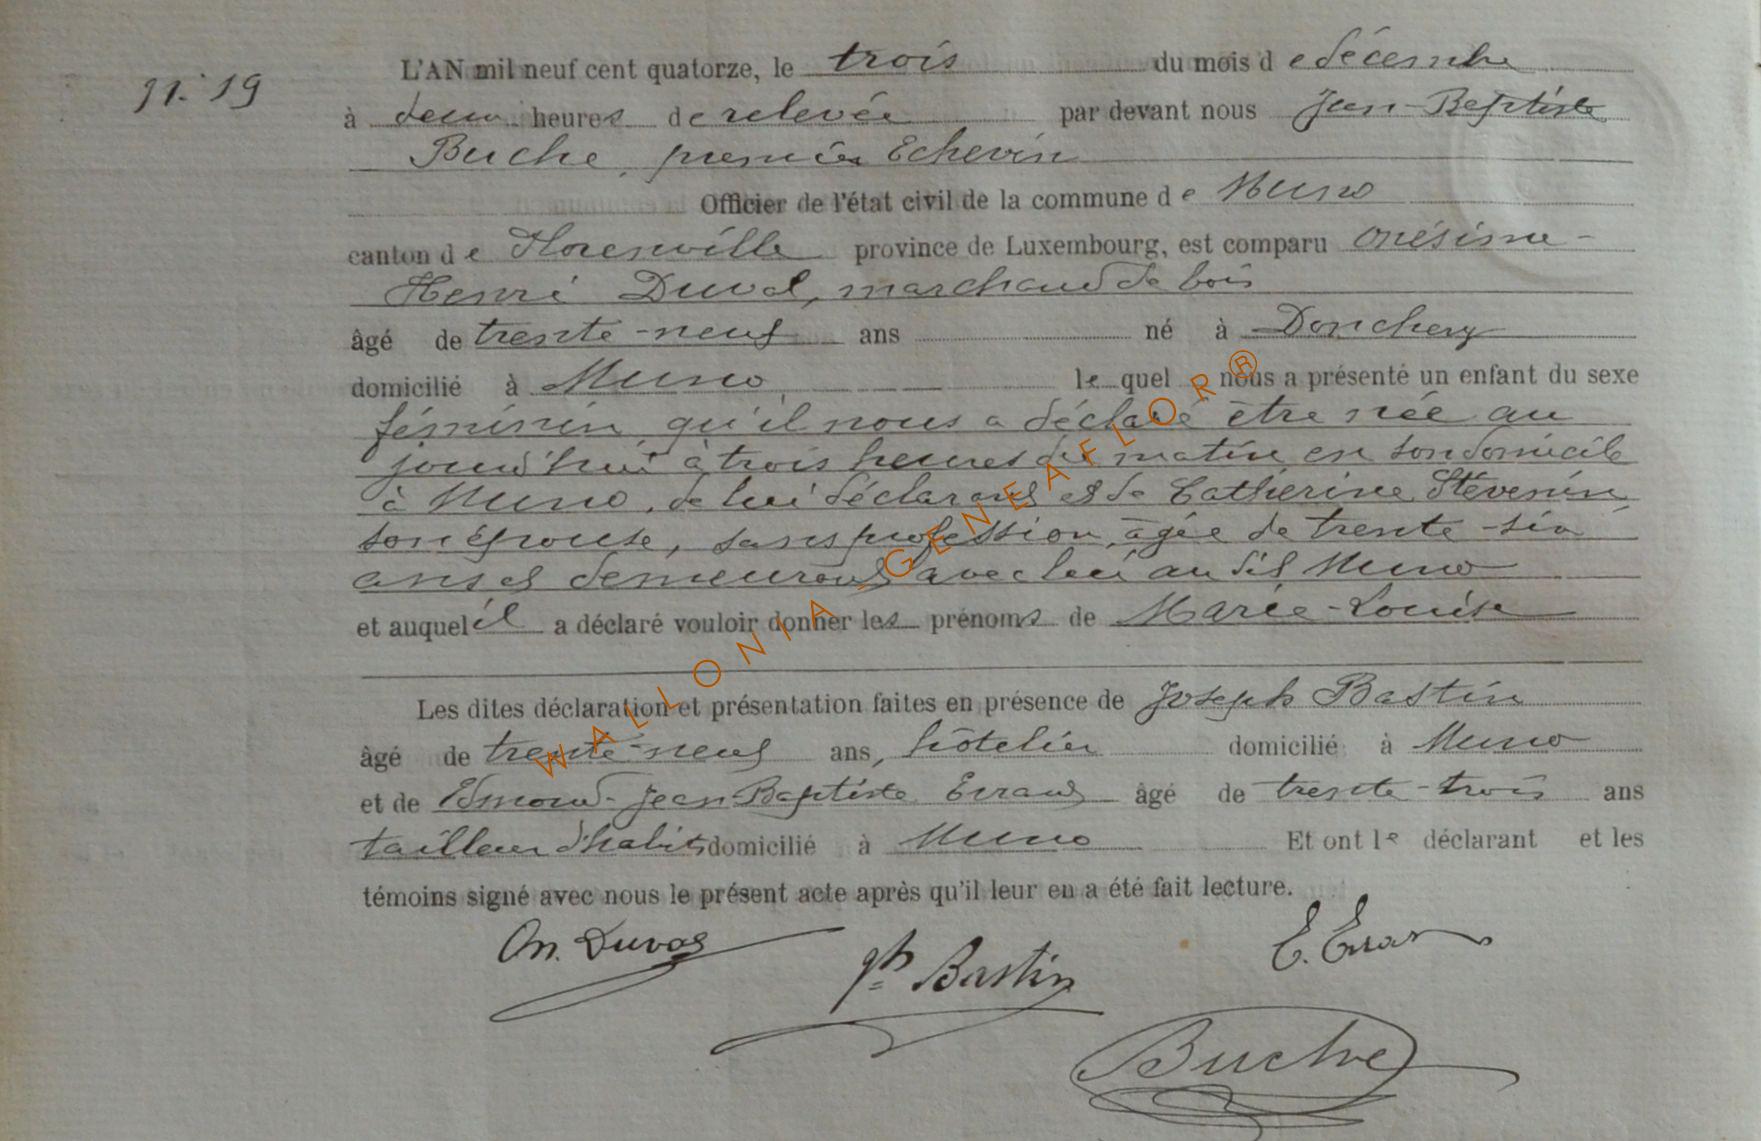 n° 19
L'AN mil neuf cent quatorze, le trois du mois de décembre
à deux heures de relevée par devant nous Jean-Baptiste
Buche, premier Echevin
Officier de l'état civil de la commune de Muno
canton de Florenville province de Luxembourg, est comparu Onésime-
Henri Duval, marchand de bois
âgé de trente-neuf ans né à Donchery
domicilié à Muno, lequel nous a présenté un enfant du sexe
féminin, qu'il nous a déclaré être née au
jourd'hui à trois heures du matin en son domicile
à Muno, de lui déclarant et de Catherine Stévenin,
son épouse, sans profession, âgée de trente-six
ans et demeurant avec lui au dit Muno
et auquel il a déclaré vouloir donner les prénoms de Marie-Louise
Les dites déclaration et présentation faites en présence de Joseph Bastin
âgé de trente-neuf ans, hôtelier domicilié à Muno
et de Edmond-Jean Baptiste Errard âgé de trente-trois ans
tailleur d'habits domicilié à Muno Et ont le déclarant et les
témoins signé avec nous le présent acte après qu'il leur en a été fait lecture.
On. Duval
Jh Bastin
E. Errard
Buche
WALLONIA GENEAFLOR®